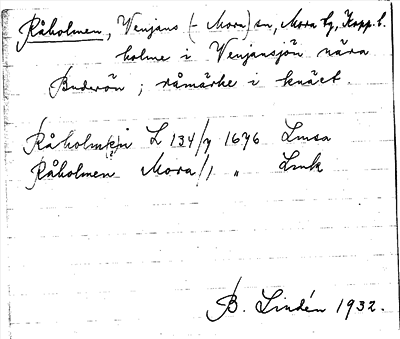 Råholmen, Venjans (- Mora) sn, Mora tg, Kopp. l.
holme i Venjansjön nära
Buderön; råmärke i knäet.
Råholm(e)n L 134/7 1696 Lmsa
Råholmen Mora/1 " Lmk
B. Lindén 1932.